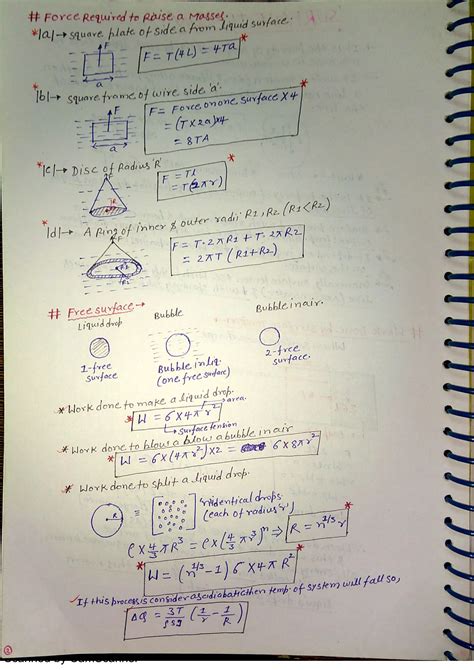 # Force Required to Raise a Masses.
*|a|→ square plate of side a from liquid surface:
F
a
F = T(4L) = 4Ta
|b|→ square frame of wire side 'a'.
F
a
F = Force on one surface X 4
= (T x 2a) x 4
= 8TA
*|c|→ Disc of Radius 'R'
F
F = TL
= T(2πr)
*|d|→ A Ring of inner & outer radii R1, R2 (R1 < R2)
F
F = T·2πR1 + T·2πR2
= 2πT (R1+R2)
## Free surface→
Liquid drop
Bubble
Bubble in air.
1-free surface
Bubble in liq.
(one free surface)
2-free surface.
* Work done to make a liquid drop.
* W = 6 x 4πr² → area.
↳ Surface tension
* Work done to blow a blow a bubble in air
* W = 6 x (4πr²) x 2 = 6 x 8πr²
* Work done to split a liquid drop.
R
≡
'n' identical drops
(each of radius 'r')
ρ x 4/3 πR³ = ρ x (4/3 πr³)n ⇒ R = n^1/3 r
* W = (n^1/3 - 1) 6 x 4πR²
✓ If this process is consider as adiabatic then temp. of system will fall so,
(1/r - 1/R)